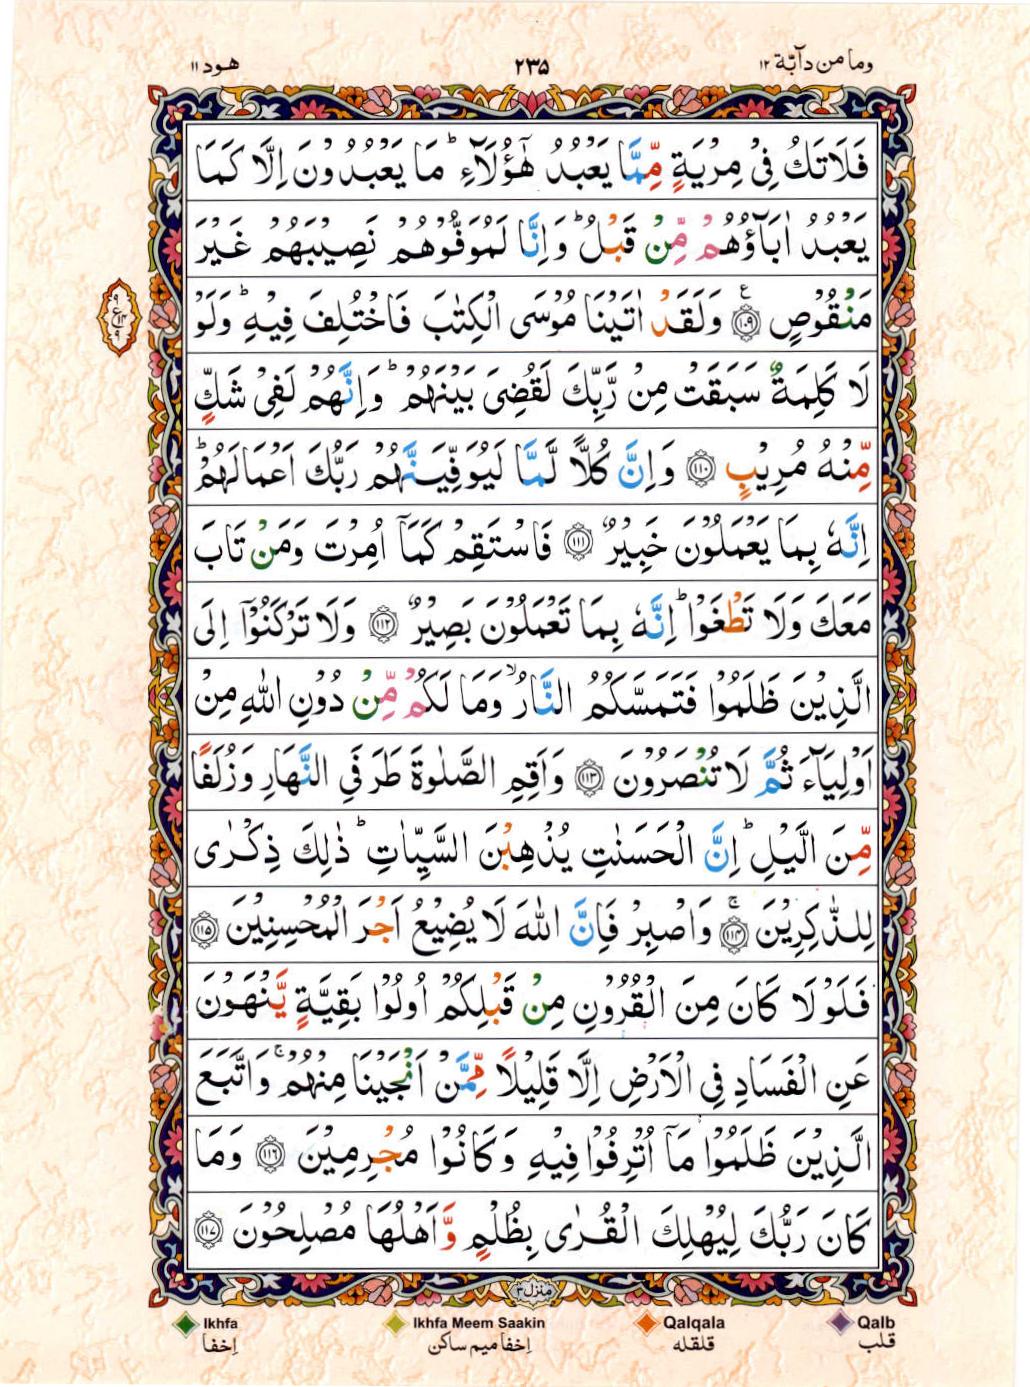 وما من دآبّة ١٢
٢٣٥
هود ١١
فَلَا تَكُ فِیْ مِرْیَةٍ مِّمَّا یَعْبُدُ هٰۤؤُلَآءِؕ مَا یَعْبُدُوْنَ اِلَّا كَمَا
یَعْبُدُ اٰبَآؤُهُمْ مِّنْ قَبْلُؕ وَاِنَّا لَمُوَفُّوْهُمْ نَصِیْبَهُمْ غَیْرَ
مَنْقُوْصٍ ﴿۱۰۹﴾ وَلَقَدْ اٰتَیْنَا مُوْسَی الْكِتٰبَ فَاخْتُلِفَ فِیْهِؕ وَلَوْ
لَا كَلِمَةٌ سَبَقَتْ مِنْ رَّبِّكَ لَقُضِیَ بَیْنَهُمْؕ وَاِنَّهُمْ لَفِیْ شَكٍّ
مِّنْهُ مُرِیْبٍ ﴿۱۱۰﴾ وَاِنَّ كُلًّا لَّمَّا لَیُوَفِّیَنَّهُمْ رَبُّكَ اَعْمَالَهُمْؕ
اِنَّهٗ بِمَا یَعْمَلُوْنَ خَبِیْرٌ ﴿۱۱۱﴾ فَاسْتَقِمْ كَمَاۤ اُمِرْتَ وَمَنْ تَابَ
مَعَكَ وَلَا تَطْغَوْاؕ اِنَّهٗ بِمَا تَعْمَلُوْنَ بَصِیْرٌ ﴿۱۱۲﴾ وَلَا تَرْكَنُوْۤا اِلَی
الَّذِیْنَ ظَلَمُوْا فَتَمَسَّكُمُ النَّارُۙ وَمَا لَكُمْ مِّنْ دُوْنِ اللّٰهِ مِنْ
اَوْلِیَآءَ ثُمَّ لَا تُنْصَرُوْنَ ﴿۱۱۳﴾ وَاَقِمِ الصَّلٰوةَ طَرَفَیِ النَّهَارِ وَزُلَفًا
مِّنَ الَّیْلِؕ اِنَّ الْحَسَنٰتِ یُذْهِبْنَ السَّیِّاٰتِؕ ذٰلِكَ ذِكْرٰی
لِلذّٰكِرِیْنَۚ ﴿۱۱۴﴾ وَاصْبِرْ فَاِنَّ اللّٰهَ لَا یُضِیْعُ اَجْرَ الْمُحْسِنِیْنَ ﴿۱۱۵﴾
فَلَوْلَا كَانَ مِنَ الْقُرُوْنِ مِنْ قَبْلِكُمْ اُولُوْا بَقِیَّةٍ یَّنْهَوْنَ
عَنِ الْفَسَادِ فِی الْاَرْضِ اِلَّا قَلِیْلًا مِّمَّنْ اَنْجَیْنَا مِنْهُمْۚ وَاتَّبَعَ
الَّذِیْنَ ظَلَمُوْا مَاۤ اُتْرِفُوْا فِیْهِ وَكَانُوْا مُجْرِمِیْنَ ﴿۱۱۶﴾ وَمَا
كَانَ رَبُّكَ لِیُهْلِكَ الْقُرٰی بِظُلْمٍ وَّاَهْلُهَا مُصْلِحُوْنَ ﴿۱۱۷﴾
منزل ٣
Ikhfa Ikhfa Meem Saakin Qalqala Qalb
اِخفا اِخفا میم ساکن قلقله قلب